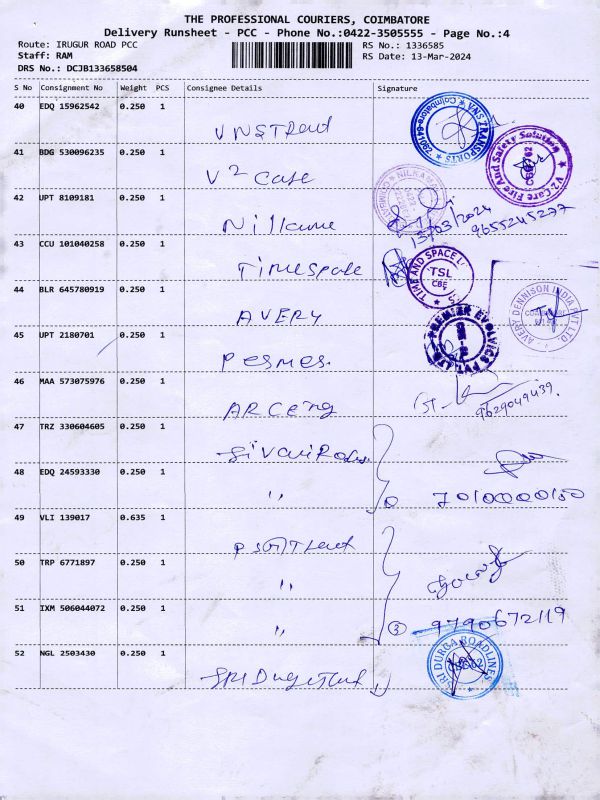 THE PROFESSIONAL COURIERS, COIMBATORE
Delivery Runsheet - PCC - Phone No.:0422-3505555 - Page No.:4
Route: IRUGUR ROAD PCC
RS No.: 1336585
Staff: RAM
RS Date: 13-Mar-2024
DRS No.: DCJB133658504
S No Consignment No Weight PCS Consignee Details Signature
40 EDQ 15962542 0.250 1
VNSTRand
VNS TRANSPORTS
41 BDG 530096235 0.250 1
V2 Care
V2 Care Fire And Safety Solution
42 UPT 8109181 0.250 1
Nilkamal
13/03/2024
9655245277
43 CCU 101040258 0.250 1
Timespace
TIME AND SPACE
TSL
CBE
44 BLR 645780919 0.250 1
AVERY
AVERY DENNISON INDIA PVT. LTD.
45 UPT 2180701 0.250 1
PREMIER EVOLVICS PVT. LTD.
46 MAA 573075976 0.250 1
ARCeng
9629049439.
47 TRZ 330604605 0.250 1
48 EDQ 24593330 0.250 1
"
7010000150
49 VLI 139017 0.635 1
50 TRP 6771897 0.250 1
"
51 IXM 506044072 0.250 1
"
3
9790672119
52 NGL 2503430 0.250 1
SRI DURGA ROADLINES